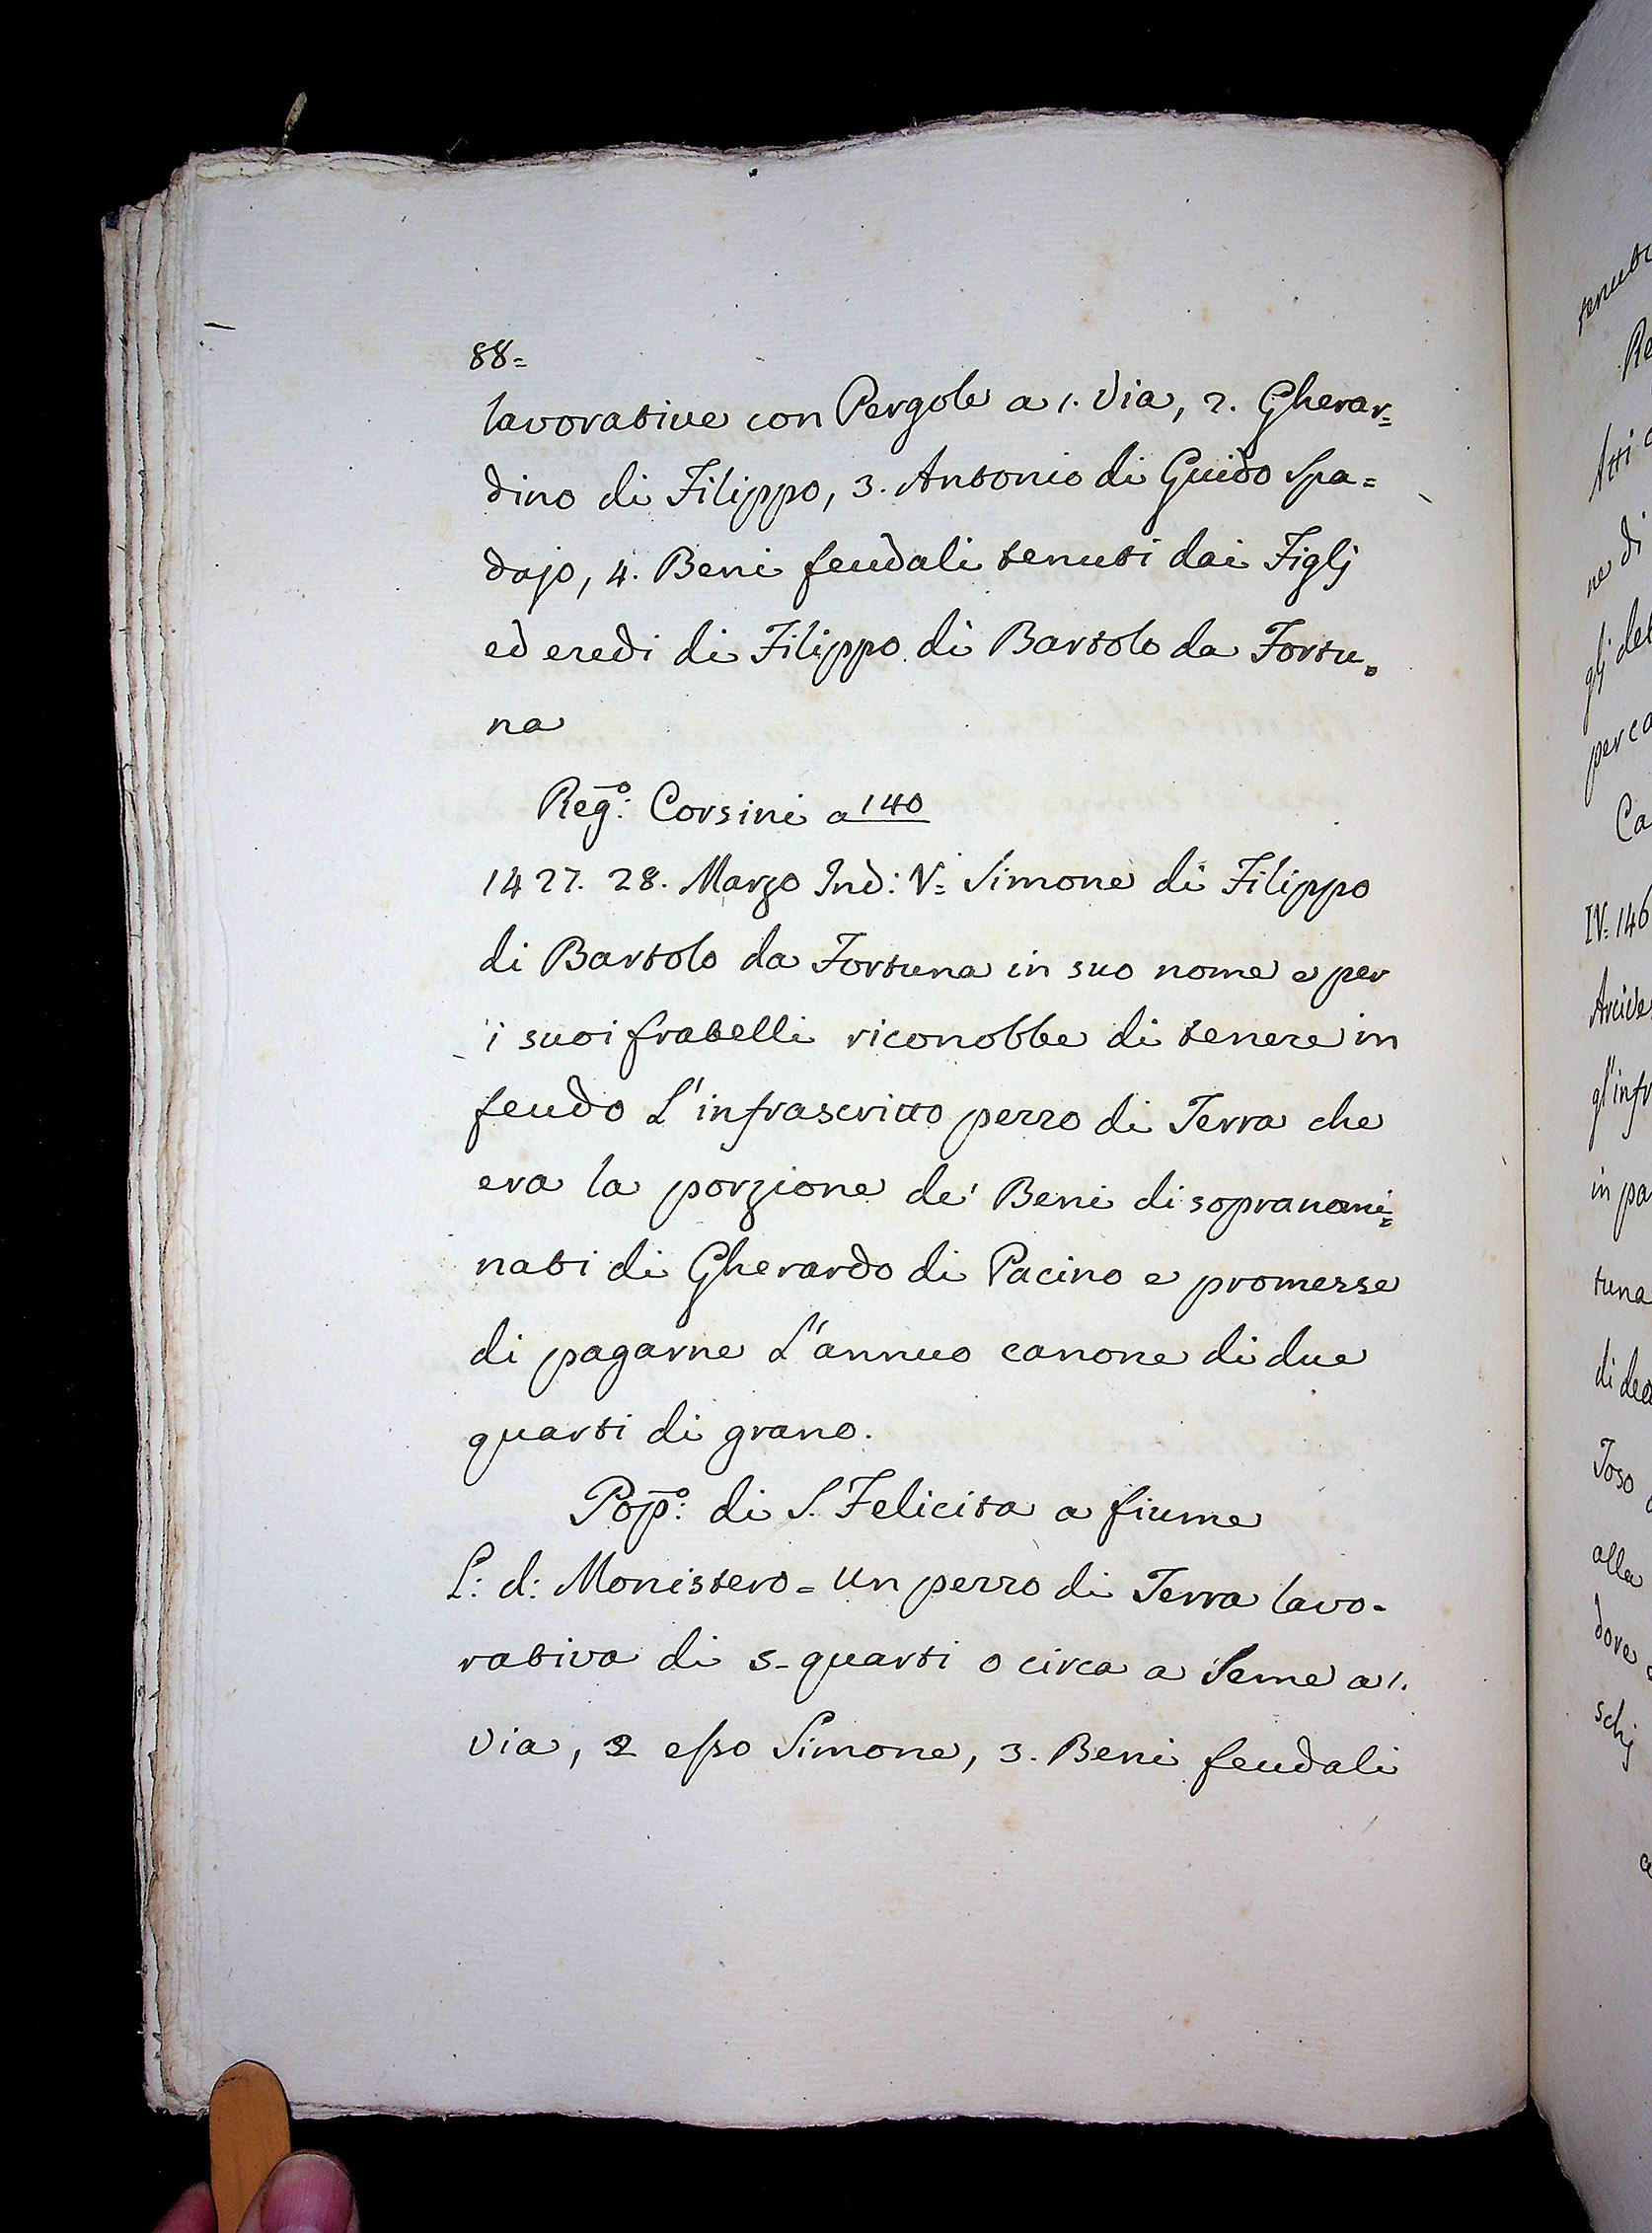 88=
lavorative con Pergole a 1. Via, 2. Gherar=
dino di Filippo, 3. Antonio di Guido Spa=
dajo, 4. Beni feudali tenuti dai Figlj
ed eredi di Filippo di Bartolo da Fortu=
na
Reg.º: Corsini a 140
1427. 28. Marzo Ind: V= Simone di Filippo
di Bartolo da Fortuna in suo nome e per
i suoi fratelli riconobbe di tenere in
feudo L'infrascritto pezzo di Terra che
era la porzione de' Beni di sopranomi=
nati di Gherardo di Pacino e promesse
di pagarne L'annuo canone di due
quarti di grano.
Pop.º: di S. Felicita a fiume
L: d: Monistero = Un pezzo di Terra lavo=
rativa di 5- quarti o circa a Seme a 1.
Via, 2 esso Simone, 3. Beni feudali
tenuti
Re
Atti
ne di
per
Ca
IV= 146
gl'infr
in pa
tuna
Toso
alla
dove
schj